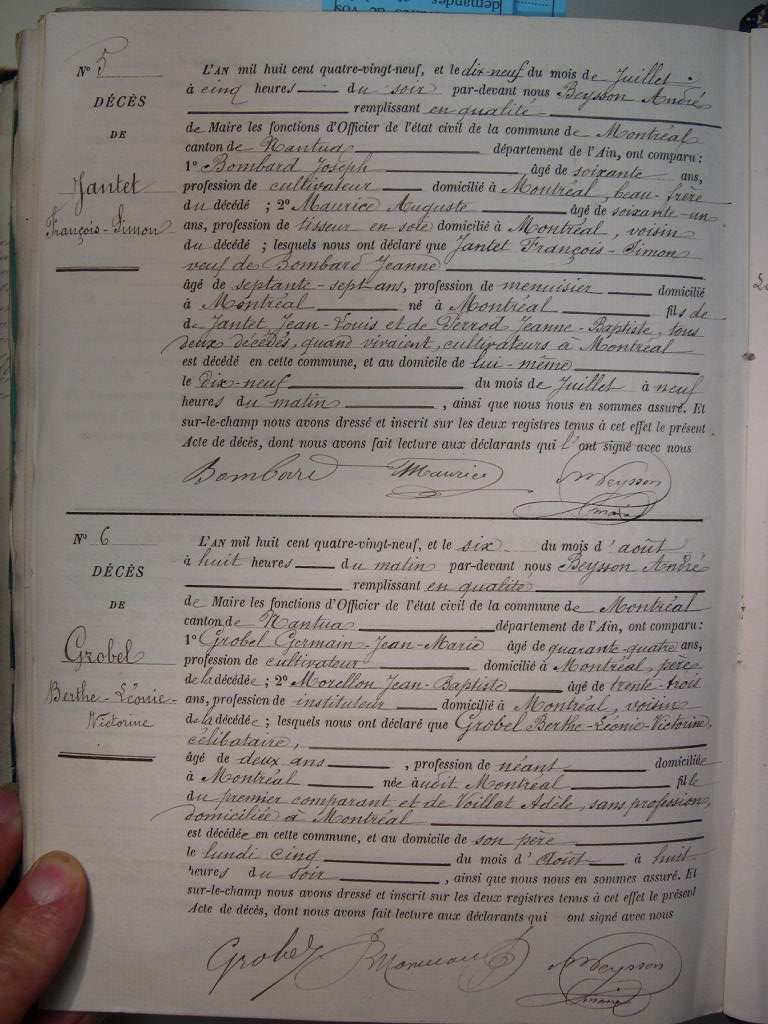 N° 5
DÉCÈS
DE
Jantet
François-Simon
L'AN mil huit cent quatre-vingt-neuf, et le dix-neuf du mois de Juillet
à cinq heures du soir par-devant nous Beysson André
remplissant en qualité
de Maire les fonctions d'Officier de l'état civil de la commune de Montréal
canton de Nantua département de l'Ain, ont comparu :
1° Bombard Joseph âgé de soixante ans,
profession de cultivateur domicilié à Montréal, beau-frère
du décédé ; 2° Maurice Auguste âgé de soixante-un
ans, profession de tisseur en soie domicilié à Montréal, voisin
du décédé ; lesquels nous ont déclaré que Jantet François-Simon
veuf de Bombard Jeanne
âgé de septante-sept ans, profession de menuisier domicilié
à Montréal né à Montréal fils de
de Jantet Jean-Louis et de Verrod Jeanne-Baptiste, tous
deux décédés, quand vivaient, cultivateurs à Montréal
est décédé en cette commune, et au domicile de lui-même
le dix-neuf du mois de Juillet à neuf
heures du matin , ainsi que nous nous en sommes assuré. Et
sur-le-champ nous avons dressé et inscrit sur les deux registres tenus à cet effet le présent
Acte de décès, dont nous avons fait lecture aux déclarants qui l'ont signé avec nous
Bombard Maurice Beysson
maire
N° 6
DÉCÈS
DE
Grobel
Berthe-Léonie-
Victorine
L'AN mil huit cent quatre-vingt-neuf, et le six du mois d'août
à huit heures du matin par-devant nous Beysson André
remplissant en qualité
de Maire les fonctions d'Officier de l'état civil de la commune de Montréal
canton de Nantua département de l'Ain, ont comparu :
1° Grobel Germain-Jean-Marie âgé de quarante-quatre ans,
profession de cultivateur domicilié à Montréal, père
de la décédée ; 2° Morellon Jean-Baptiste âgé de trente-trois
ans, profession de instituteur domicilié à Montréal, voisin
de la décédée ; lesquels nous ont déclaré que Grobel Berthe-Léonie-Victorine,
célibataire,
âgé de deux ans , profession de néant domiciliée
à Montréal née audit Montréal fille
du premier comparant et de Voillat Adèle, sans profession,
domiciliée à Montréal
est décédée en cette commune, et au domicile de son père
le lundi cinq du mois d'Août à huit
heures du soir , ainsi que nous nous en sommes assuré. Et
sur-le-champ nous avons dressé et inscrit sur les deux registres tenus à cet effet le présent
Acte de décès, dont nous avons fait lecture aux déclarants qui ont signé avec nous
Grobel Beysson
maire